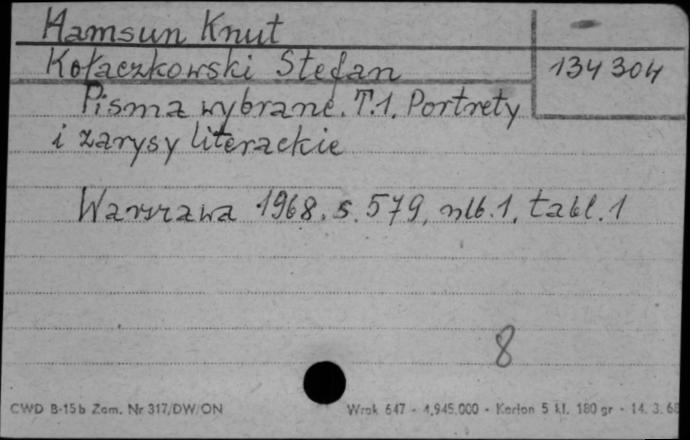 Hamsun Knut
Kołaczkowski Stefan
134 304
Pisma wybrane. T.1. Portrety
i zarysy literackie
Warszawa 1968. s. 579, nlb. 1, tabl. 1
8
CWD B-15b Zam. Nr 317/DW/ON
Wrak 647 - 4.945.000 - Karton 5 kl. 180 gr - 14. 3. 68